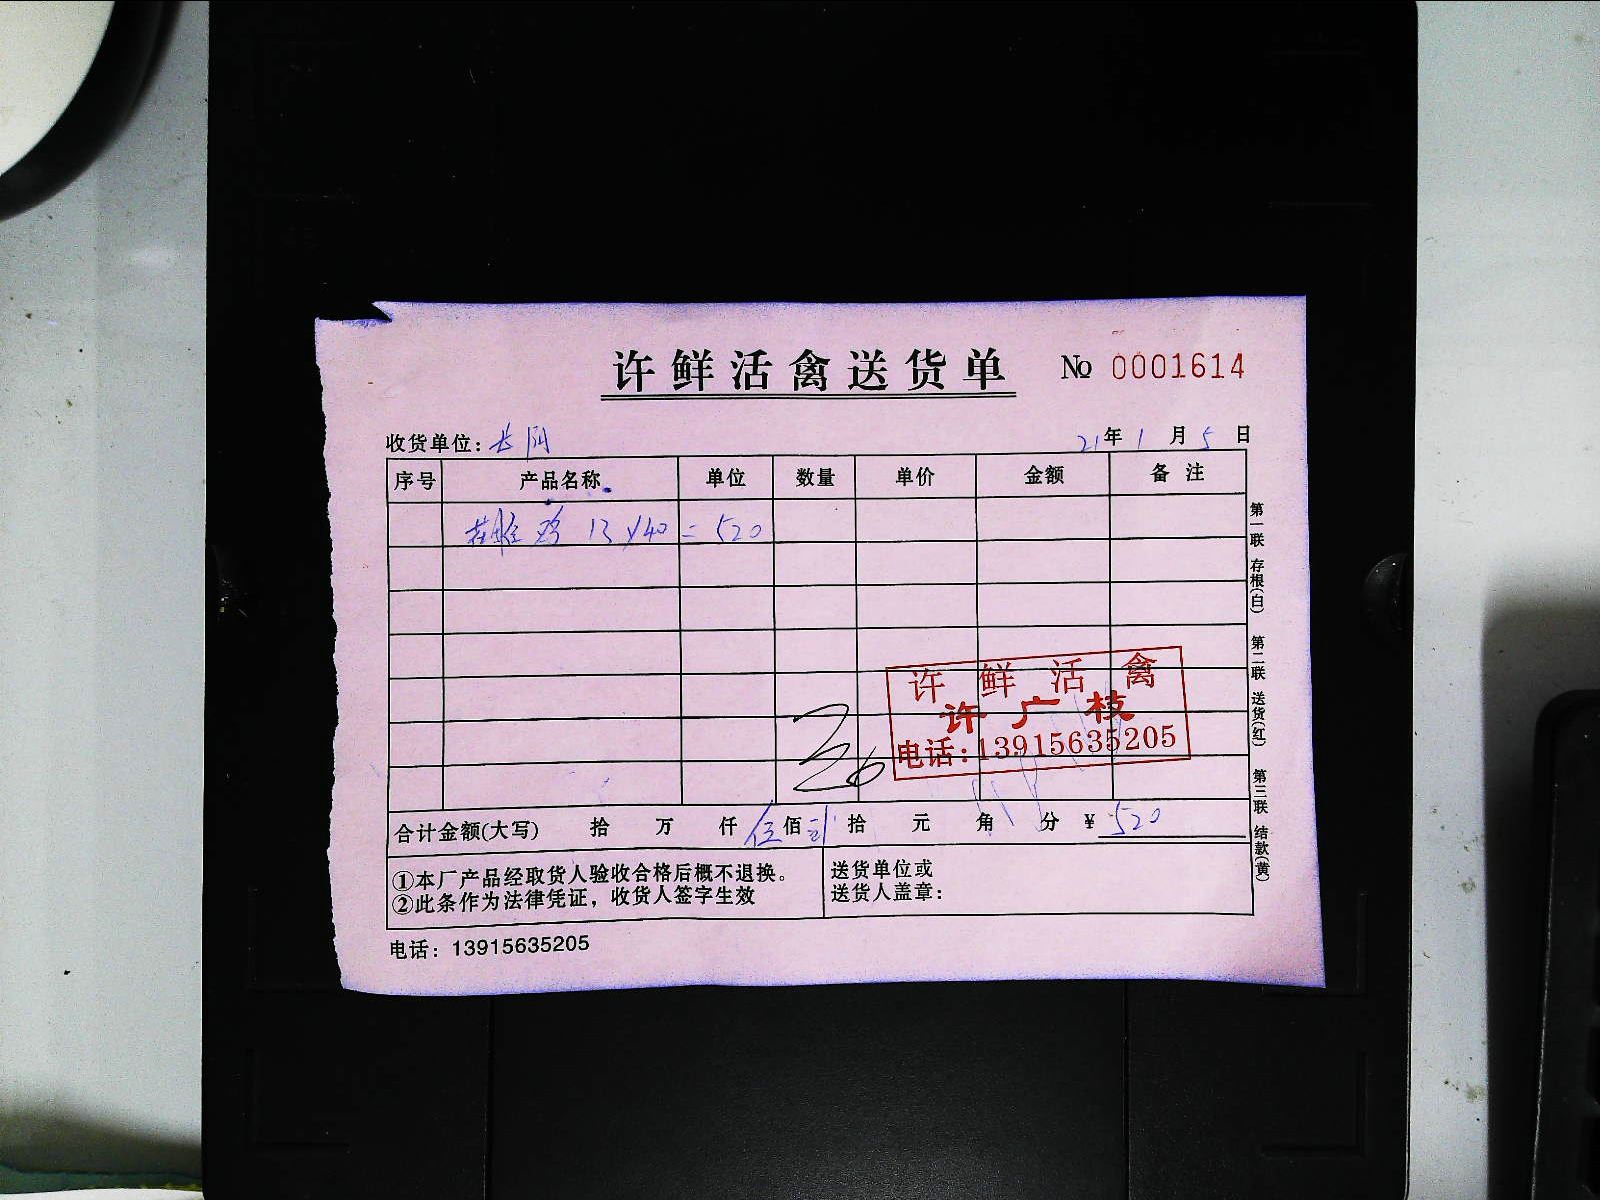 许鲜活禽送货单 No 0001614
收货单位: 长阴 21年1月5日
序号 产品名称 单位 数量 单价 金额 备注
鸡 13×40=520
许鲜活禽
许广枝
电话:13915635205
合计金额(大写) 拾 万 仟 伍佰 贰拾 元 角 分 ¥ 520
①本厂产品经取货人验收合格后概不退换。
②此条作为法律凭证，收货人签字生效
送货单位或
送货人盖章:
电话: 13915635205
第一联 存根(白) 第二联 送货(红) 第三联 结款(黄)